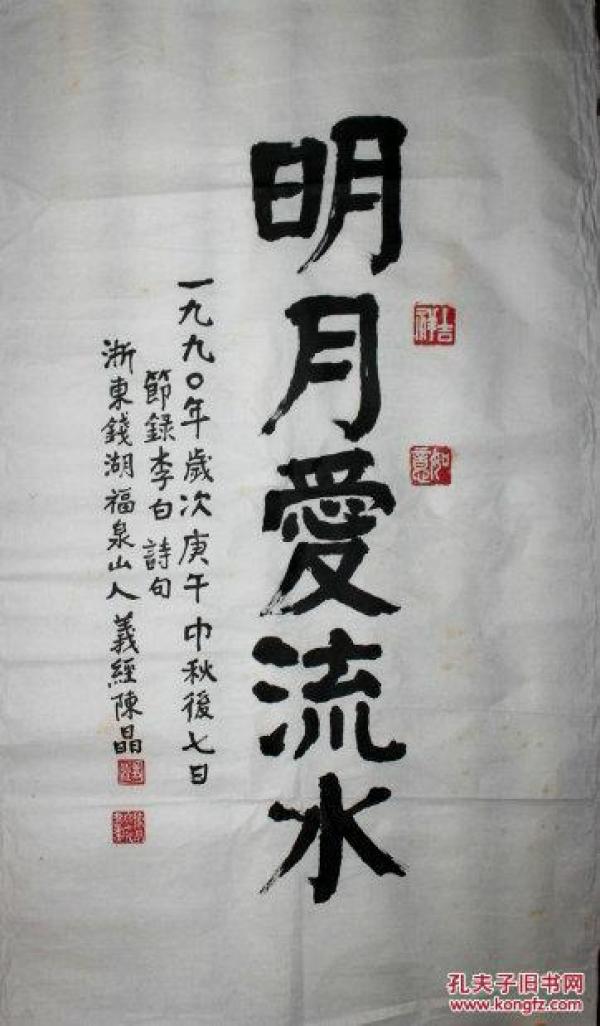 明月愛流水
吉祥
如意
一九九〇年歲次庚午中秋後七日
節錄李白詩句
浙東錢湖福泉山人義經陳晶
孔夫子旧书网
www.kongfz.com